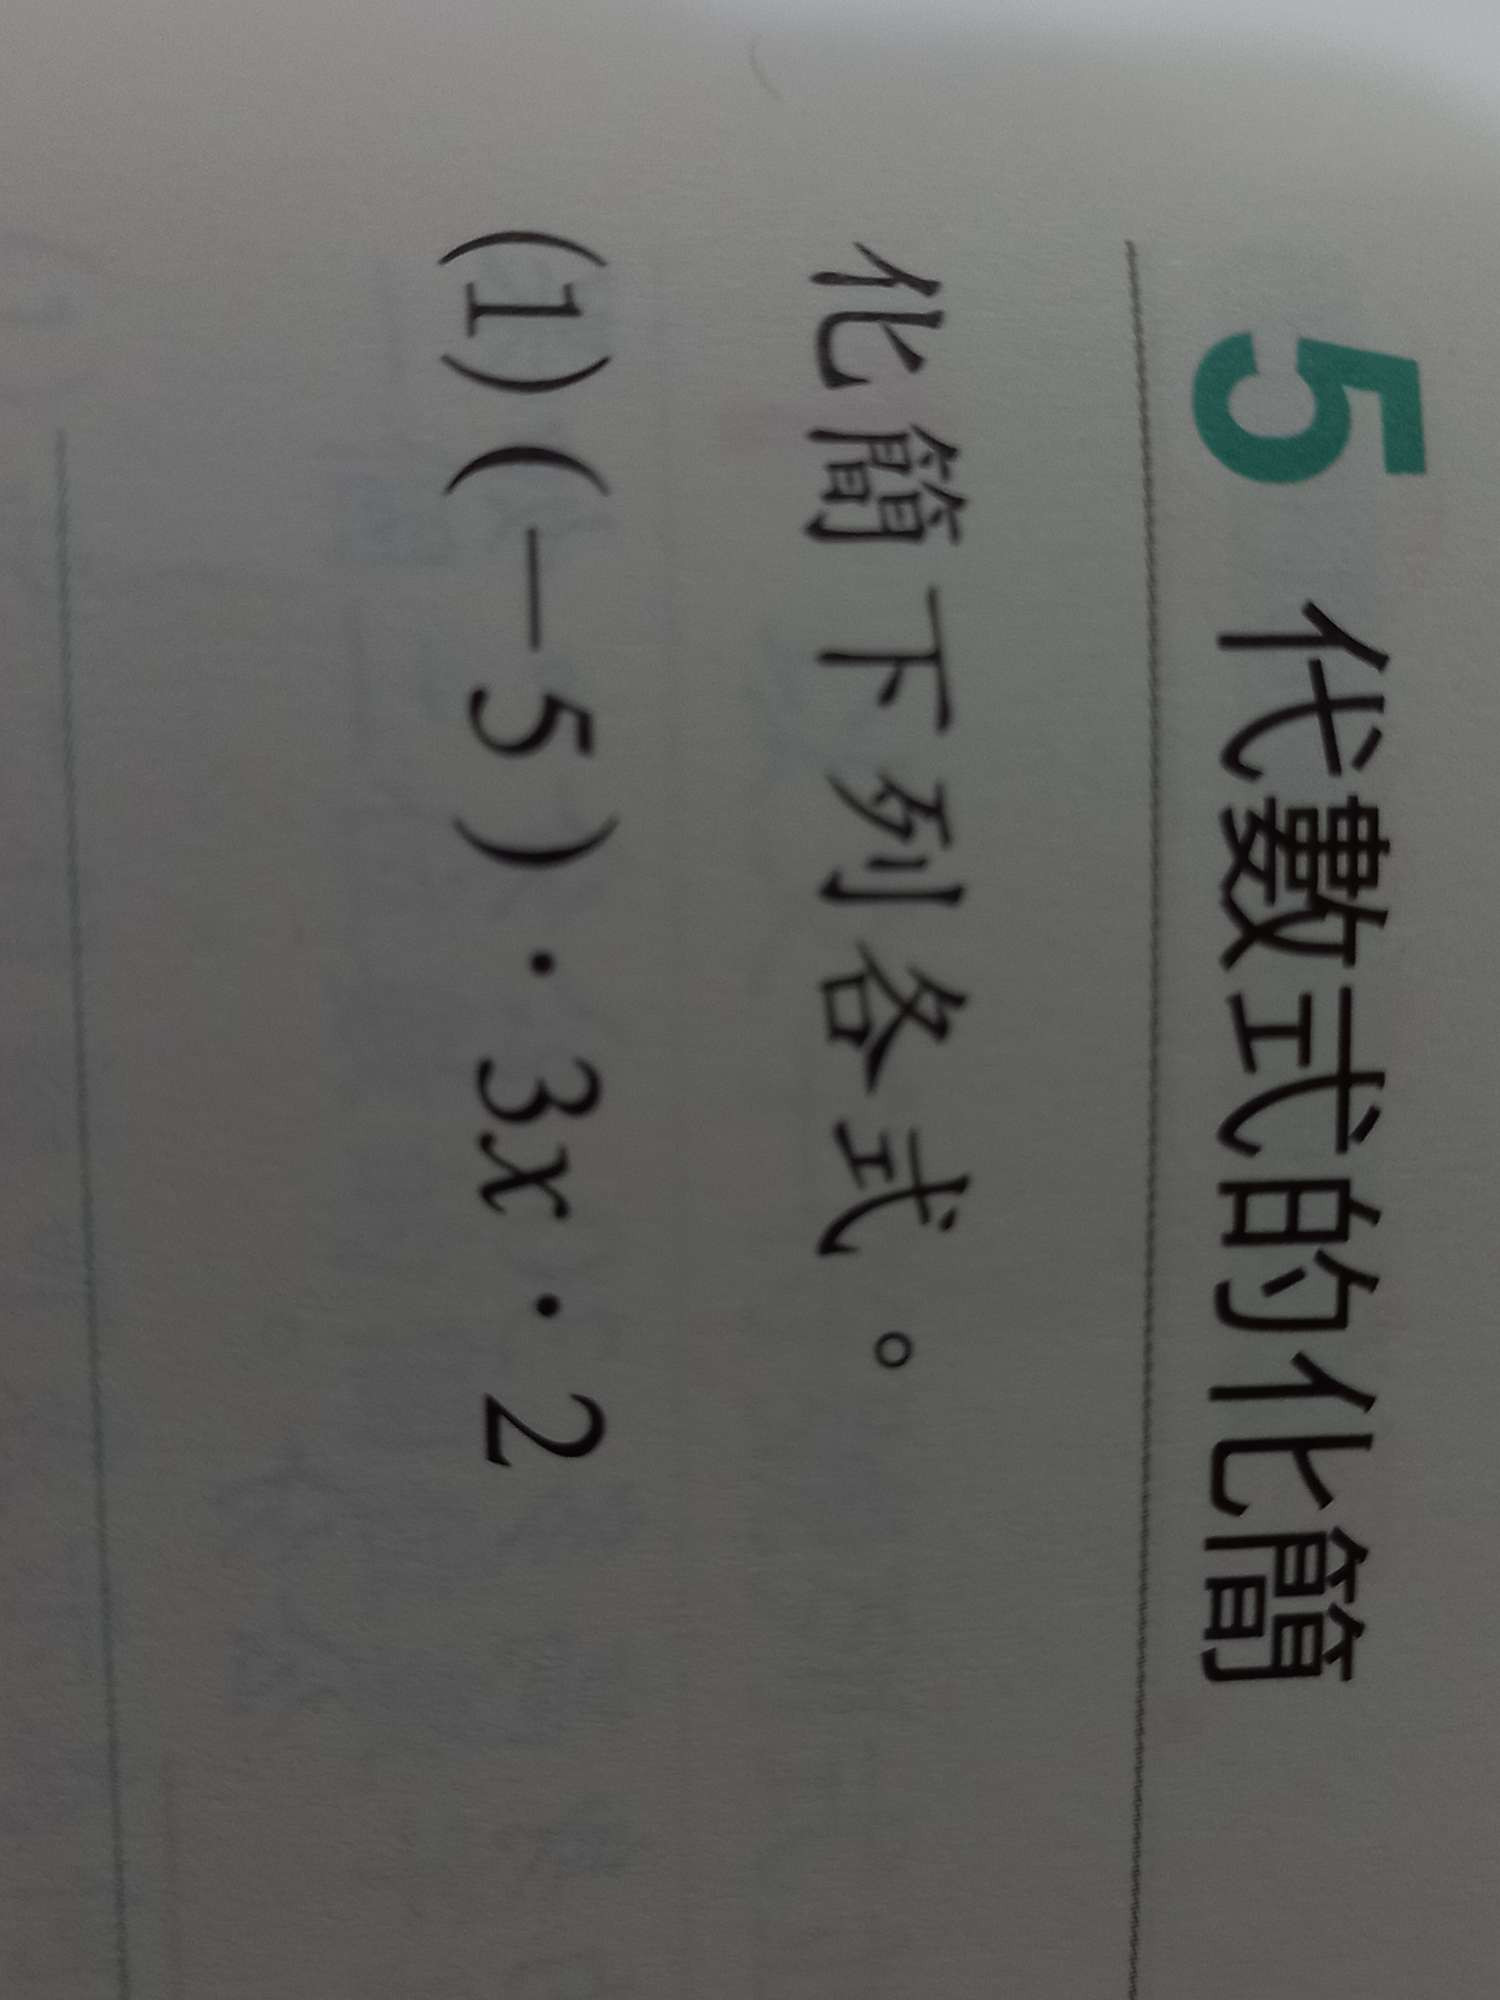 5 代數式的化簡
化簡下列各式。
(1)(-5)·3x·2